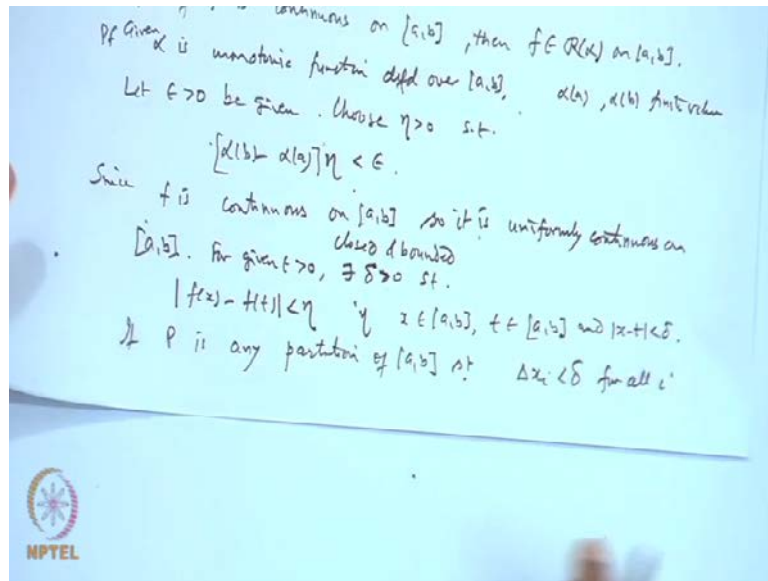 continuous on [a,b], then f ∈ R(α) on [a,b].
Pf Given α is monotonic function dfd over [a,b], α(a), α(b) finite value
Let ε>0 be given. Choose η>0 s.t.
[α(b)-α(a)]η < ε.
Since f is continuous on [a,b] so it is uniformly continuous on
closed & bounded
[a,b]. For given ε>0, ∃ δ>0 st.
|f(x)-f(t)|<η if x ∈ [a,b], t ∈ [a,b] and |x-t|<δ.
If P is any partition of [a,b] st Δxi<δ for all i
NPTEL